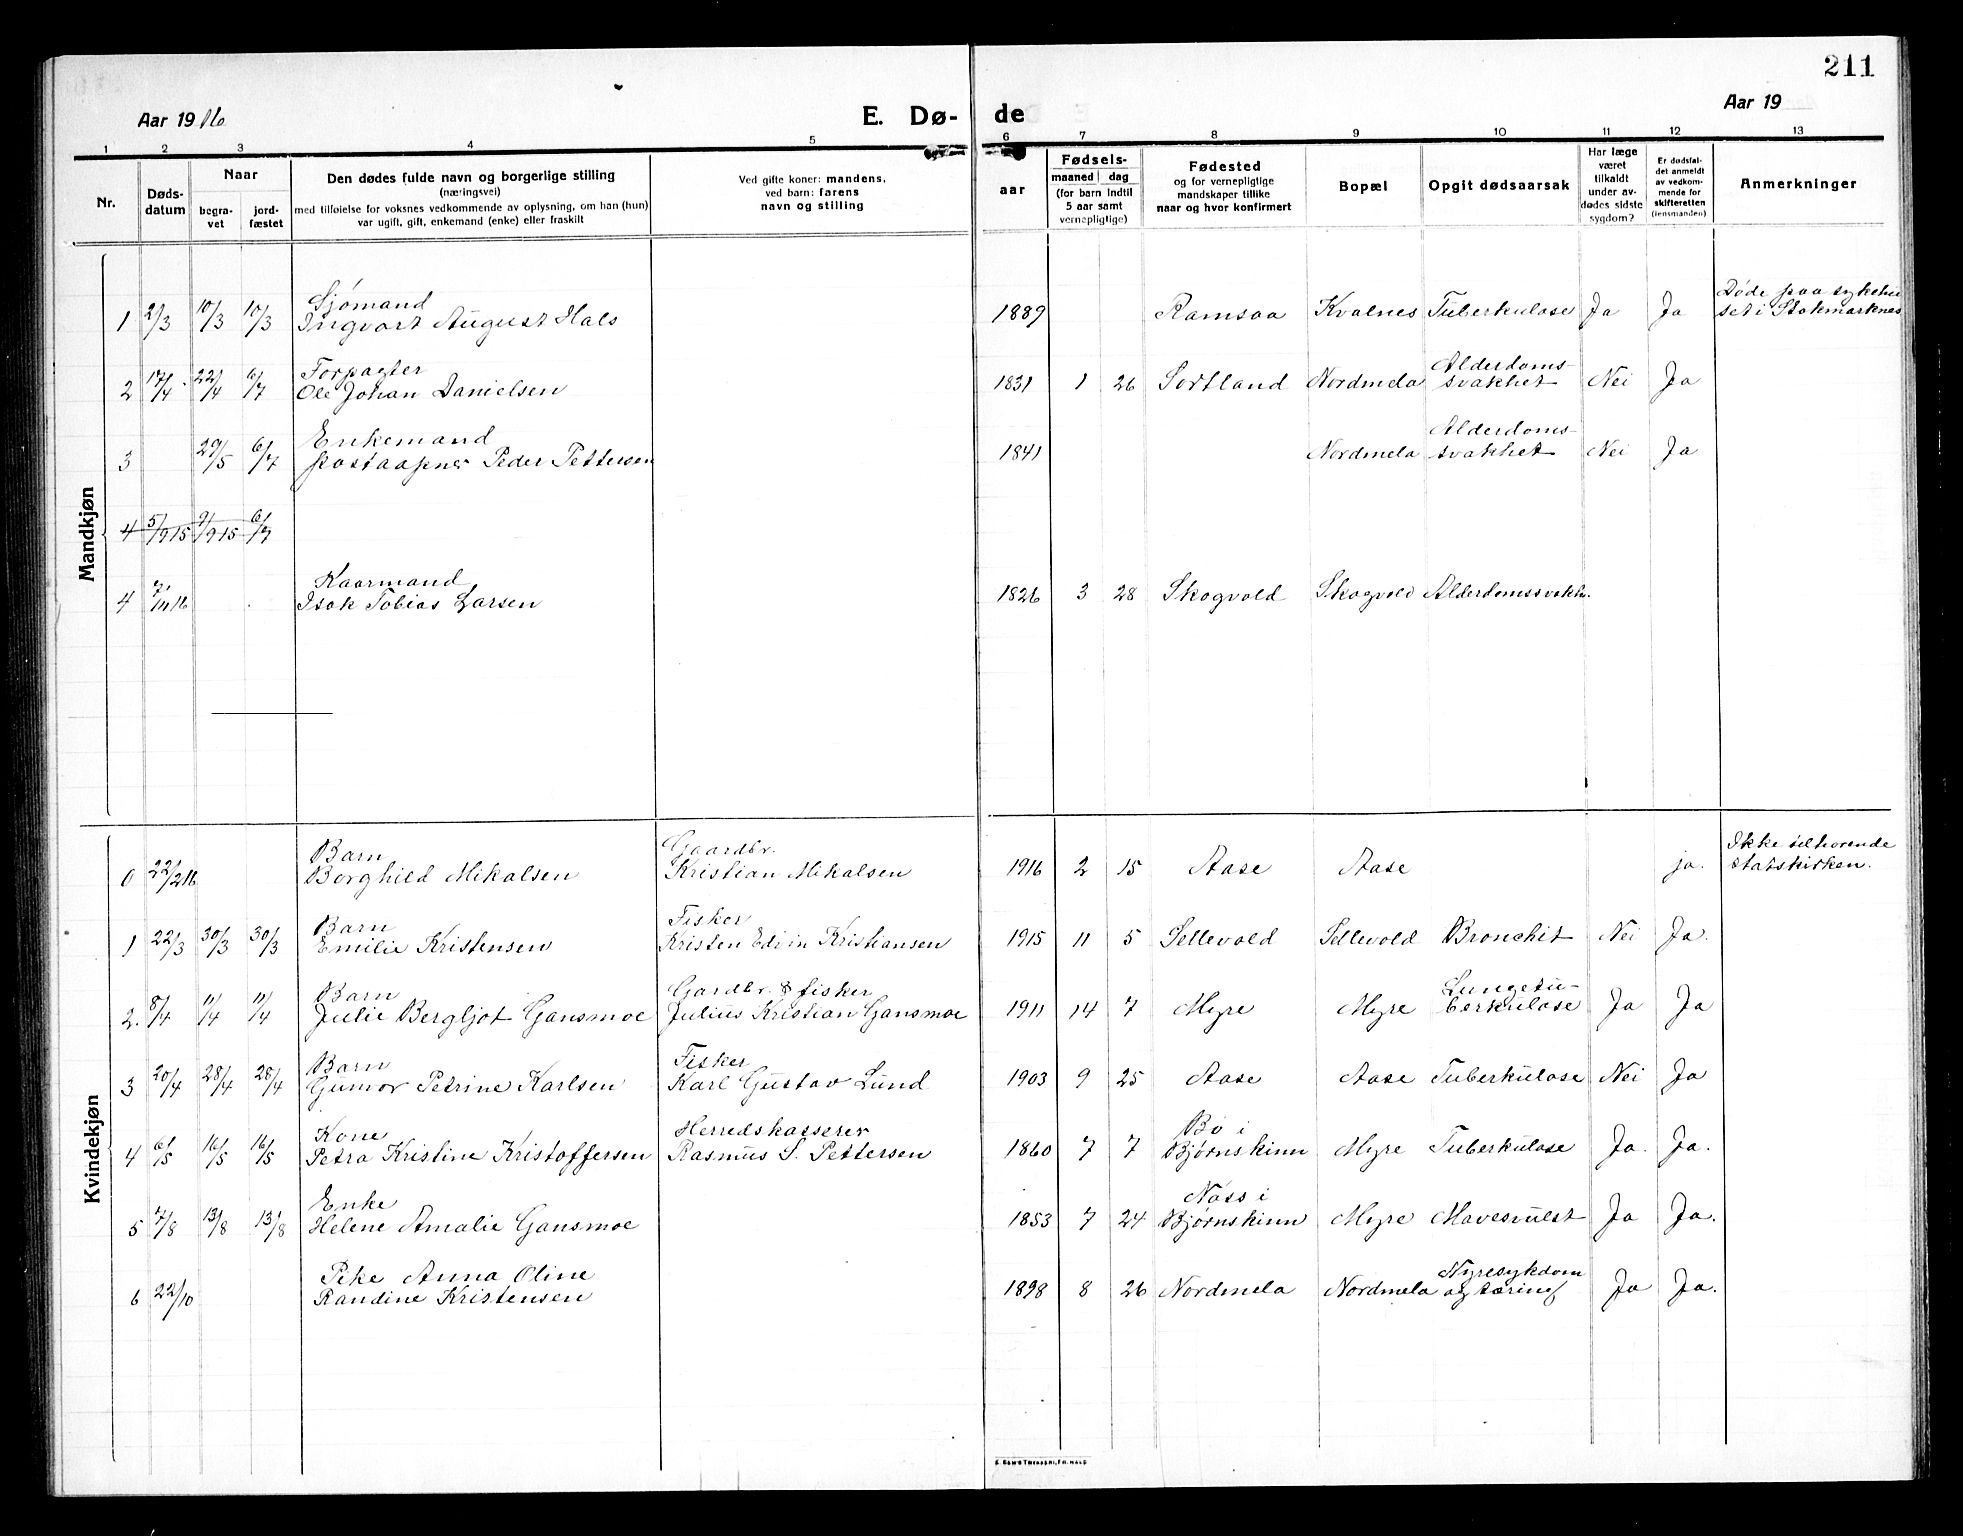 211
Aar 1916
E. Dø- de
Aar 19
1 2 3 4 5 6 7 8 9 10 11 12 13
Nr.
Døds-
datum
Naar
begra-
vet
jord-
fæstet
Den dødes fulde navn og borgerlige stilling
(næringsvei)
med tilføielse for voksnes vedkommende av oplysning, om han (hun)
var ugift, gift, enkemand (enke) eller fraskilt
Ved gifte koner: mandens,
ved barn: farens
navn og stilling
aar
Fødsels-
maaned dag
(for barn indtil
5 aar samt
vernepligtige)
Fødested
og for vernepligtige
mandskaper tillike
naar og hvor konfirmert
Bopæl
Opgit dødsaarsak
Har læge
været
tilkaldt
under av-
dødes sidste
sygdom?
Er dødsfal-
det anmeldt
av vedkom-
mende for
skifteretten
(lensmanden)
Anmerkninger
Mandkjøn
Sjømand
1 2/3 10/3 10/3 Ingvart August Hals 1889 Ramsaa Kvalnes Tuberkulose Ja Ja
Døde paa sykehu
set i Stokmarknes
Forpagter
2 17/4 22/4 6/7 Ole Johan Danielsen 1831 1 26 Sortland Nordmela
Alderdoms-
svakhet Nei Ja
Enkemand
3 29/5 6/7 postaapner Peder Pettersen 1841 Nordmela
Alderdoms-
svakhet Nei Ja
4 5/9 15 9/9 15 6/7
Kaarmand
4 7/11 16 Isak Tobias Larsen 1826 3 28 Skogvold Skogvold Alderdomssvakh.
Kvindekjøn
Barn
0 22/2 16 Borghild Mikalsen
Gaardbr.
Kristian Mikalsen 1916 2 15 Aase Aase ja.
Ikke tilhorende
statskirken.
Barn
1 22/3 30/3 30/3 Emilie Kristensen
Fisker
Kristen Edvin Kristiansen 1915 11 5 Sellevold Sellevold Bronchit Nei Ja.
Barn
2. 8/4 11/4 11/4 Julie Bergljot Gansmoe
Gardbr. & fisker
Julius Kristian Gansmoe 1911 14 7 Myre Myre
Lungetu-
berkulose Ja Ja
Barn
3 20/4 28/4 28/4 Gunvor Petrine Karlsen
Fisker
Karl Gustav Lund 1903 9 25 Aase Aase Tuberkulose Nei Ja
Kone
4 6/5 16/5 16/5 Petra Kristine Kristoffersen
Herredskasserer
Rasmus S. Pettersen 1860 7 7
Bø i
Bjørnskinn Myre Tuberkulose Ja. Ja.
Enke
5 7/8 13/8 13/8 Helene Amalie Gansmoe 1853 7 24
Nøss i
Bjørnskinn Myre Mavesvulst Ja Ja.
Pike Anna Oline
6 22/10 Randine Kristensen 1898 8 26 Nordmela Nordmela
Nyresykdom
og tæring Ja Ja.